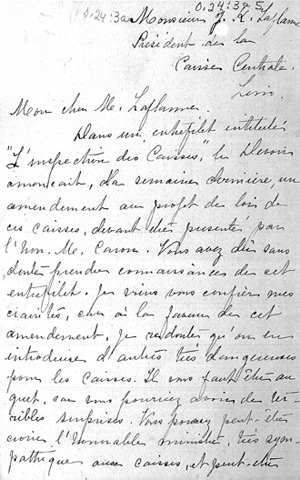 0.24:3a
0.24:3a 5
Monsieur J. K. Laflamme
Président de la
Caisse Centrale
Lévis.
Mon cher M. Laflamme.
Dans un entrefilet intitulé
"L'inspection des Caisses", le Devoir
annonçait, la semaine dernière, un
amendement au profit des lois de
ces caisses, devant être présenté par
l'Hon. M. Caron. Vous avez dû sans
doute prendre connaissance de cet
entrefilet. Je viens vous confier mes
craintes, car à la faveur de cet
amendement, je redoute qu'on en
introduise d'autres très dangereuses
pour les Caisses. Il vous faut être au
guet, car vous pourriez avoir de ter-
ribles surprises. Vous pouvez peut-être
croire l'honorable ministre, très sym-
pathique aux caisses, et peut-être